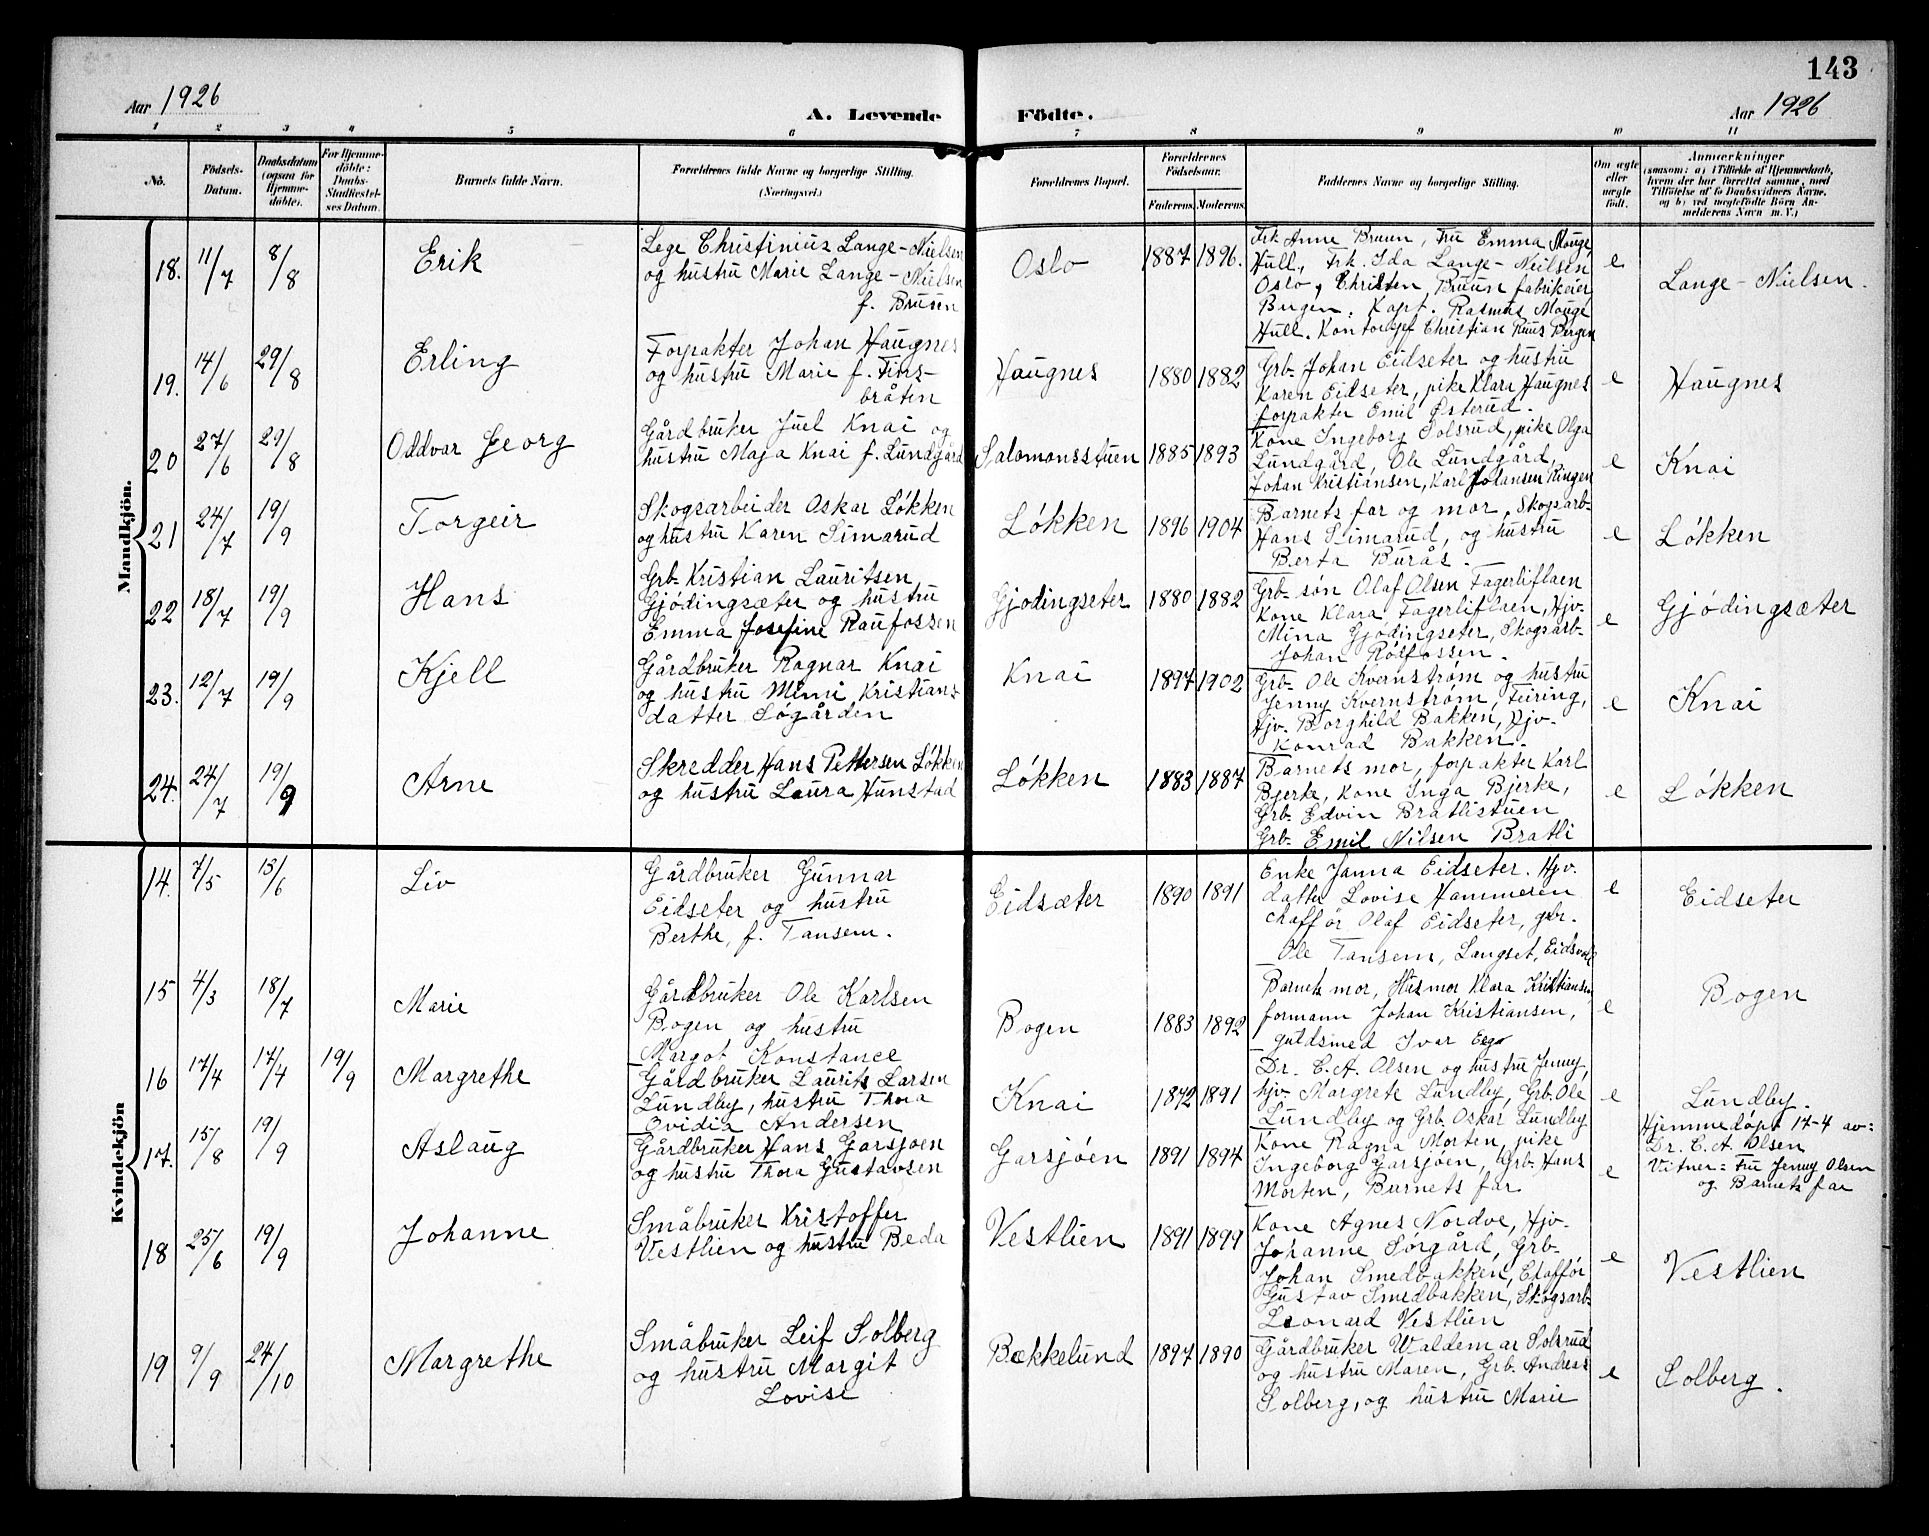 143
Aar 1926
A. Levende Födte.
Aar 1926
1 2 3 4 5 6 7 8 9 10 11
No.
Födsels-
Datum.
Daabsdatum
(ogsaa for
Hjemme-
döbte).
For Hjemme-
döbte:
Daabs-
Stadfæstel-
ses Datum.
Barnets fulde Navn.
Forældrenes fulde Navne og borgerlige Stilling.
(Næringsvei.)
Forældrenes Bopæl.
Forældrenes
Födselsaar.
Faderens. Moderens.
Faddernes Navne og borgerlige Stilling.
Om ægte
eller
uægte
født.
Anmærkninger
(saasom: a) i Tilfælde af Hjemmedaab,
hvem der har forrettet samme, med
Tilføielse af to Daabsvidners Navne,
og b) ved uægtefödte Börn An-
melderens Navn m. V.)
Mandkjön.
18. 11/7 8/8 Erik
Lege Christinius Lange-Nielsen
og hustru Marie Lange-Nielsen
f. Bruun
Oslo 1887 1896.
Frk Anne Bruun, Fru Emma Mouge
Hull, Frk. Ida Lange-Neilsen
Oslo, Christen Bruun fabrikeier
Bergen. Kapt. Rasmus Mouge
Hull. Kontorsjef Christian Ruus Bergen
e Lange-Nielsen.
19. 14/6 29/8 Erling
Forpakter Johan Haugnes
og hustru Marie f. Fins-
bråten
Haugnes 1880 1882
Grb. Johan Eidseter og hustru
Karen Eidseter, pike Klara Haugnes
forpakter Emil Østerud.
e Haugnes
20 27/6 29/8 Oddvar Georg
Gårdbruker Juel Knai og
hustru Maja Knai f. Lundgård
Salomonsstuen 1885 1893
Kone Ingeborg Solsrud, pike Olga
Lundgård, Ole Lundgård,
Johan Kristiansen, Karl Johansen Ringen
e Knai
21 24/7 19/9 Torgeir
Skogsarbeider Oskar Løkken
og hustru Karen Simarud
Løkken 1896 1904
Barnets far og mor, Skogsarb-
Hans Simarud, og hustru
Berta Burås.
e Løkken
22 18/7 19/9 Hans
Grb. Kristian Lauritsen,
Gjødingsæter og hustru
Emma Josefine Raufossen
Gjødingseter 1880 1882
Grb. søn Olaf Olsen Fagerliflaen
Kone Klara Fagerliflaen, Hjv.
Mina Gjødingseter, Skogsarb-
Johan Rolfossen.
e Gjødingsæter
23. 12/7 19/9 Kjell
Gårdbruker Ragnar Knai
og hustru Mimi Kristians-
datter Søgården
Knai 1897 1902
Grb. Ole Kvernstrøm og hustru
Jenny Kvernstrøm, Feiring,
Hjv. Borghild Bakken, Hjv.
Konrad Bakken.
e Knai
24. 24/7 19/9 Arne
Skredder Hans Pettersen Løkken
og hustru Laura Hunstad
Løkken 1883 1887
Barnets mor, forpakter Karl
Bjerke, Kone Inga Bjerke,
Grb. Edvin Bratlistuen
Grb. Emil Nilsen Bratli
e Løkken
Kvindekjön
14. 7/5 13/6 Liv
Gårdbruker Gunnar
Eidseter og hustru
Berthe, f. Tansem.
Eidsæter 1890 1891
Enke Janna Eidseter. Hjv.
datter Lovise Hammeren
chafför Olaf Eidseter, gbr.
Ole Tansem, Langset, Eidsvoll
e Eidseter
15 4/3 18/7 Marie
Gårdbruker Ole Karlsen
Bogen og hustru
Margot Konstance
Bogen 1883 1892
Barnets mor, Husmor Klara Kristiansen
formann Johan Kristiansen,
guldsmed Ivar
e Bogen
16 17/4 17/4 19/9 Margrethe
Gårdbruker Laurits Larsen
Lundby, hustru Thora
Ovidia Andersen
Knai 1872 1891
Dr. C.A. Olsen og hustru Jenny,
hjv. Margrete Lundby, Grb. Ole
Lundby og Grb. Oskar Lundby
e Lundby.
Hjemmedøpt 17-4 av:
Dr. C. A. Olsen
Vitner: Fru Jenny Olsen
og Barnets far
17. 15/8 19/9 Aslaug
Gårdbruker Hans Garsjøen
og hustru Thora Gustavsen
Garsjøen 1891 1894
Kone Ragna Morten, pike
Ingeborg Garsjøen, Grb. Hans
Morten, Barnets far
e
18 25/6 19/9 Johanne
Småbruker Kristoffer
Vestlien og hustru Beda
Vestlien 1891 1899
Kone Agnes Nordve, Hjv.
Johanne Sørgård, Grb.
Johan Smedbakken, Chafför
Gustav Smedbakken, Skogsarb-
Leonard Vestlien
e Vestlien
19 9/9 24/10 Margrethe
Småbruker Leif Solberg
og hustru Margit
Lovise
Bækkelund 1897 1890
Gårdbruker Waldemar Solsrud
og hustru Maren, Grb. Andreas
Solberg, og hustru Marie
e Solberg.